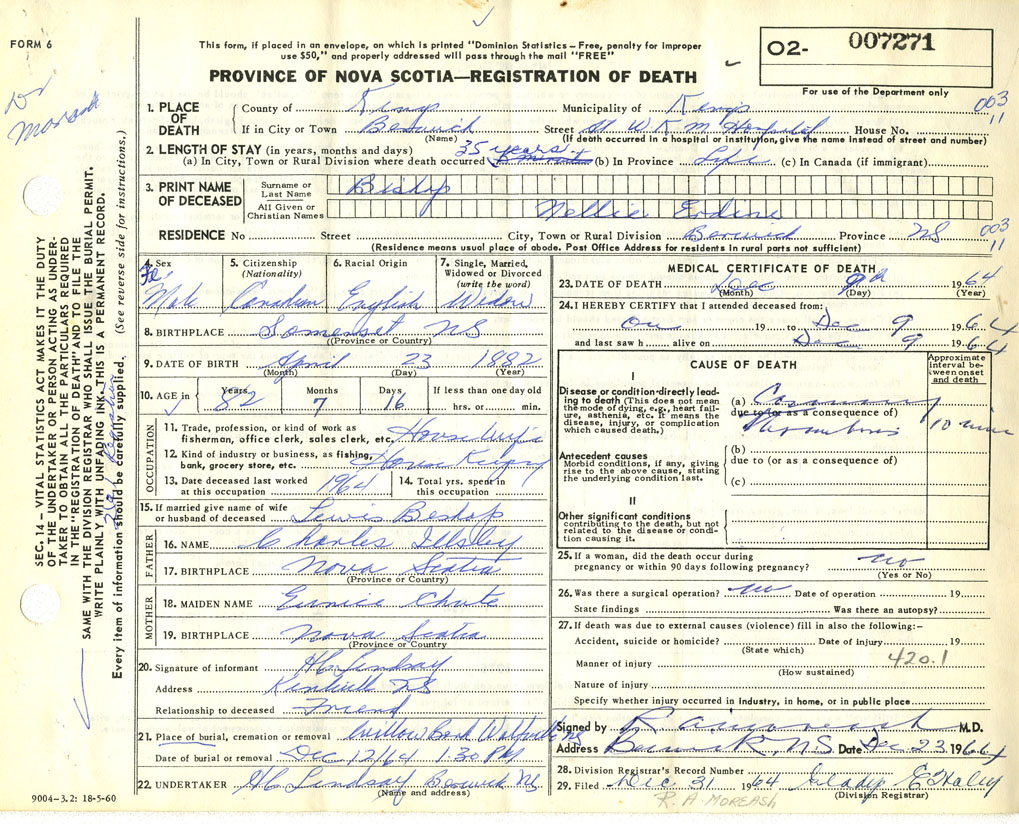 FORM 6
This form, if placed in an envelope, on which is printed "Dominion Statistics – Free, penalty for improper
use $50," and properly addressed will pass through the mail "FREE"
PROVINCE OF NOVA SCOTIA—REGISTRATION OF DEATH
O2- 007271
For use of the Department only
Dr
003
11
1. PLACE OF DEATH County of Kings Municipality of Kings
If in City or Town Berwick Street At W K M Hospital House No.
(Name) (If death occurred in a hospital or institution, give the name instead of street and number)
2. LENGTH OF STAY (in years, months and days) 35 years
(a) In City, Town or Rural Division where death occurred (b) In Province Life (c) In Canada (if immigrant)
3. PRINT NAME OF DECEASED Surname or Last Name Bishop
All Given or Christian Names Nellie Erdine
RESIDENCE No Street City, Town or Rural Division Berwick Province NS
003
11
(Residence means usual place of abode. Post Office Address for residents in rural parts not sufficient)
4. Sex 5. Citizenship (Nationality) 6. Racial Origin 7. Single, Married, Widowed or Divorced (write the word)
Fe
Male Canadian English Widow
8. BIRTHPLACE Somerset NS
(Province or Country)
9. DATE OF BIRTH April 23 1882
(Month) (Day) (Year)
10. AGE in Years Months Days If less than one day old
82 7 16 hrs. or min.
OCCUPATION
11. Trade, profession, or kind of work as fisherman, office clerk, sales clerk, etc. House Wife
12. Kind of industry or business, as fishing, bank, grocery store, etc. House Keeping
13. Date deceased last worked at this occupation 1964 14. Total yrs. spent in this occupation
15. If married give name of wife or husband of deceased Lewis Bishop
FATHER
16. NAME Charles Illsley
17. BIRTHPLACE Nova Scotia
(Province or Country)
MOTHER
18. MAIDEN NAME Eunice Chute
19. BIRTHPLACE Nova Scotia
(Province or Country)
20. Signature of informant H C Lindsay
Address NS
Relationship to deceased Friend
21. Place of burial, cremation or removal Willow Bank Wolfville NS
Date of burial or removal Dec 12/64 1:30 PM
22. UNDERTAKER H C Lindsay Berwick NS
(Name and address)
MEDICAL CERTIFICATE OF DEATH
23. DATE OF DEATH Dec 9th 1964
(Month) (Day) (Year)
24. I HEREBY CERTIFY that I attended deceased from:
on 19 to Dec 9 1964
and last saw h alive on Dec 9 1964
CAUSE OF DEATH
Approximate interval between onset and death
I
Disease or condition directly leading to death (This does not mean the mode of dying, e.g., heart failure, asthenia, etc. It means the disease, injury, or complication which caused death.)
(a) Coronary
due to (or as a consequence of)
Thrombosis 10 min
Antecedent causes
Morbid conditions, if any, giving rise to the above cause, stating the underlying condition last.
(b)
due to (or as a consequence of)
(c)
II
Other significant conditions
contributing to the death, but not related to the disease or condition causing it.
25. If a woman, did the death occur during
pregnancy or within 90 days following pregnancy? no
(Yes or No)
26. Was there a surgical operation? no Date of operation 19
State findings Was there an autopsy?
27. If death was due to external causes (violence) fill in also the following:-
Accident, suicide or homicide? Date of injury 19
(State which)
Manner of injury 420.1
(How sustained)
Nature of injury
Specify whether injury occurred in Industry, in home, or in public place
Signed by R A Moreash M.D.
Address Berwick, N.S. Date Dec 23 1964
28. Division Registrar's Record Number
29. Filed Dec 31 1964 Gladys E Haley
(Division Registrar)
R. A MOREASH
SEC. 14 – VITAL STATISTICS ACT MAKES IT THE DUTY
OF THE UNDERTAKER OR PERSON ACTING AS UNDER-
TAKER TO OBTAIN ALL THE PARTICULARS REQUIRED
IN THE "REGISTRATION OF DEATH" AND TO FILE THE
SAME WITH THE DIVISION REGISTRAR WHO SHALL ISSUE THE BURIAL PERMIT.
WRITE PLAINLY WITH UNFADING INK–THIS IS A PERMANENT RECORD.
Every item of information should be carefully supplied. (See reverse side for instructions.)
9004–3.2: 18-5-60